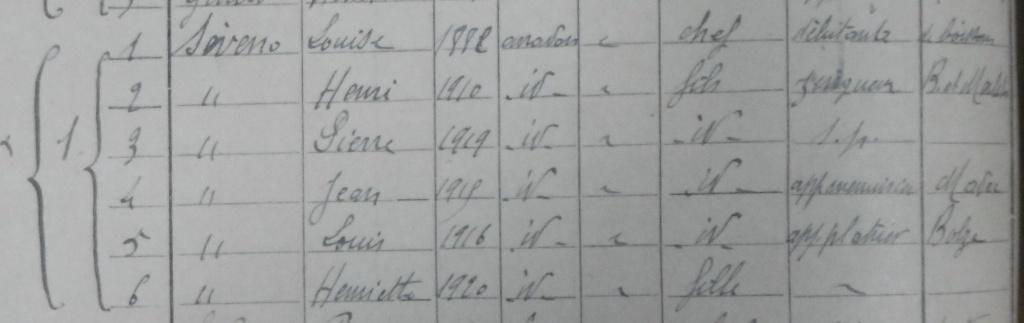 1 1 Séveno Louise 1882 " chef débitante de boissons
2 " Henri 1910 id - " fils
3 " Pierre 1919 id - " id - s.p.
4 " Jean 1915 id - " id - app menuisier
5 " Louis 1916 id - " id - app plâtrier
6 " Henriette 1920 id - " fille "